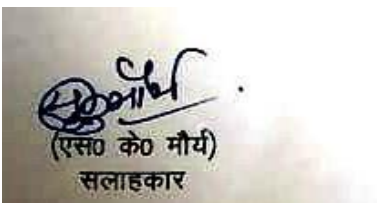 (एस0 के0 मौर्य)
सलाहकार